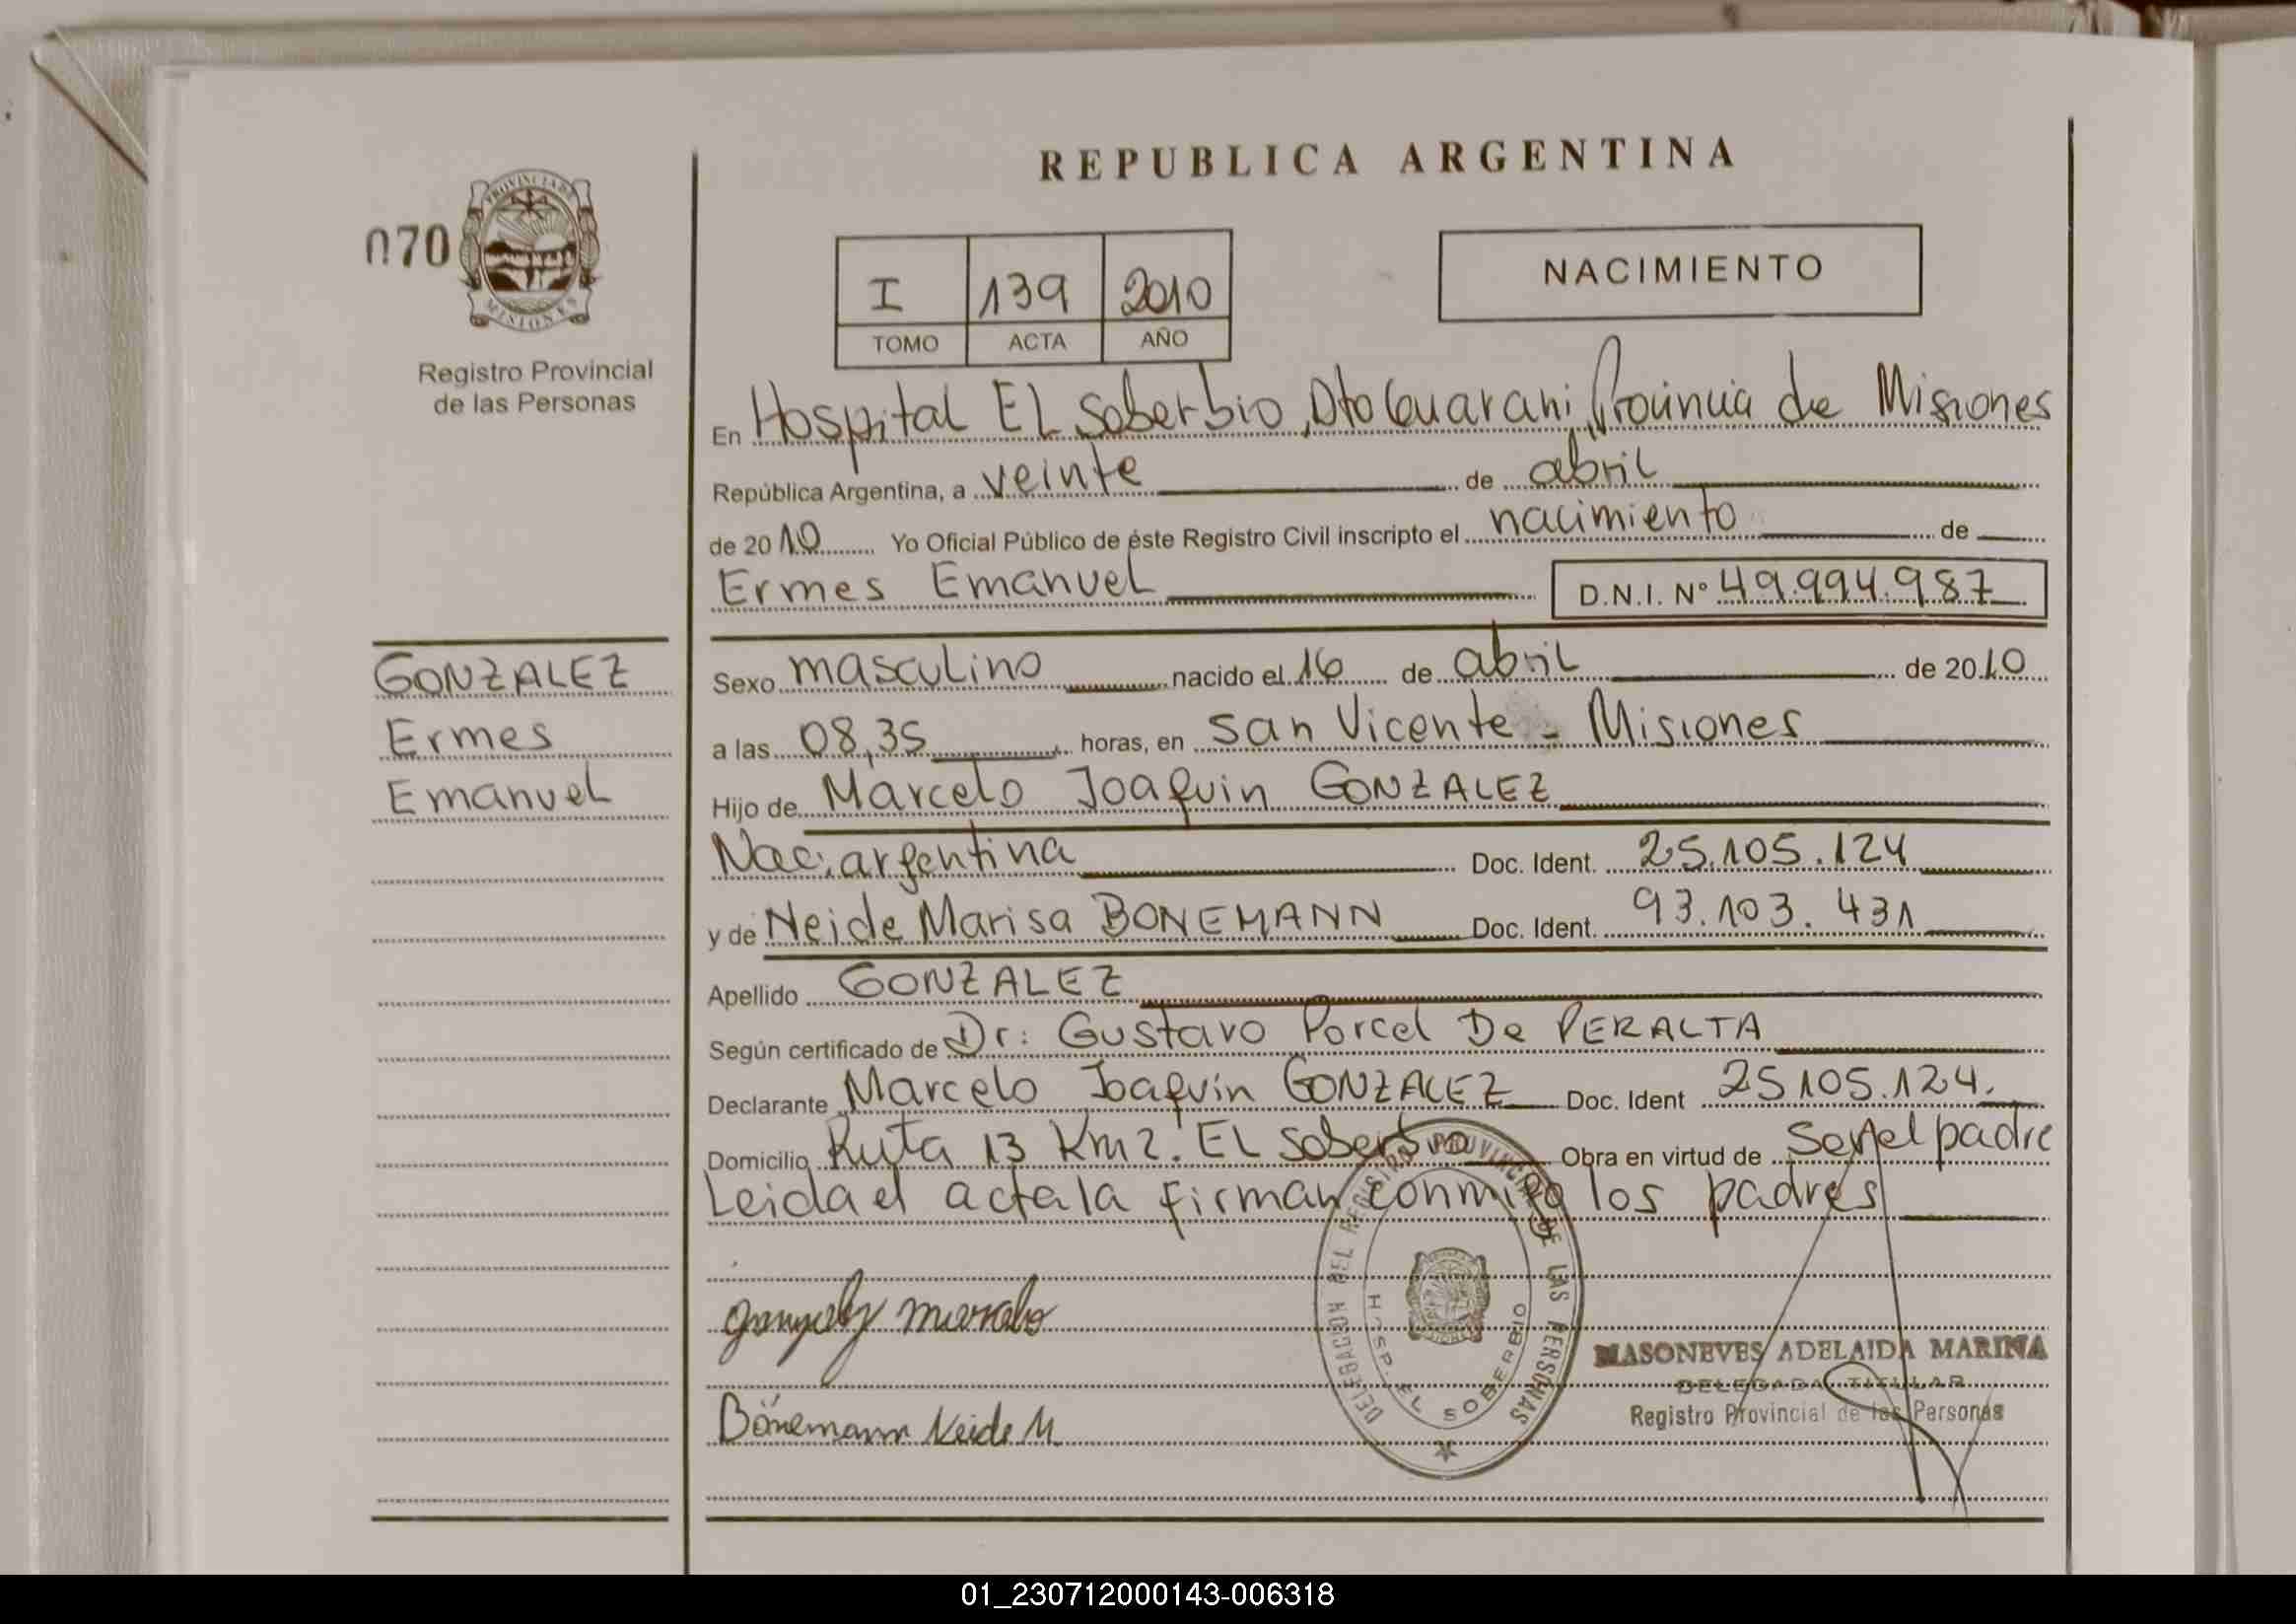 REPUBLICA ARGENTINA
070
PROVINCIA DE
MISIONES
Registro Provincial
de las Personas
I 139 2010
TOMO ACTA AÑO
NACIMIENTO
En Hospital EL Soberbio, Dto Guarani, Provincia de Misiones
República Argentina, a veinte de abril
de 2010 Yo Oficial Público de éste Registro Civil inscripto el nacimiento de
Ermes Emanuel D.N.I. Nº 49.994.987
GONZALEZ
Ermes
Emanuel
Sexo masculino nacido el 16 de abril de 2010
a las 08,35 horas, en San Vicente - Misiones
Hijo de Marcelo Joaquin GONZALEZ
Nac. argentina Doc. Ident. 25.105.124
y de Neide Marisa BONEMANN Doc. Ident. 93.103.431
Apellido GONZALEZ
Según certificado de Dr: Gustavo Porcel De PERALTA
Declarante Marcelo Joaquin GONZALEZ Doc. Ident 25105.124.
Domicilio Ruta 13 Km 2. EL Soberbio Obra en virtud de ser el padre
Leida el acta la firman conmigo los padres
DELEGACION DEL REGISTRO PROVINCIAL DE LAS PERSONAS
HOSP. EL SOBERBIO
gonzalez marcelo
Bönemann Neide M.
MASONEVES ADELAIDA MARINA
DELEGADA TITULAR
Registro Provincial de las Personas
01_230712000143-006318